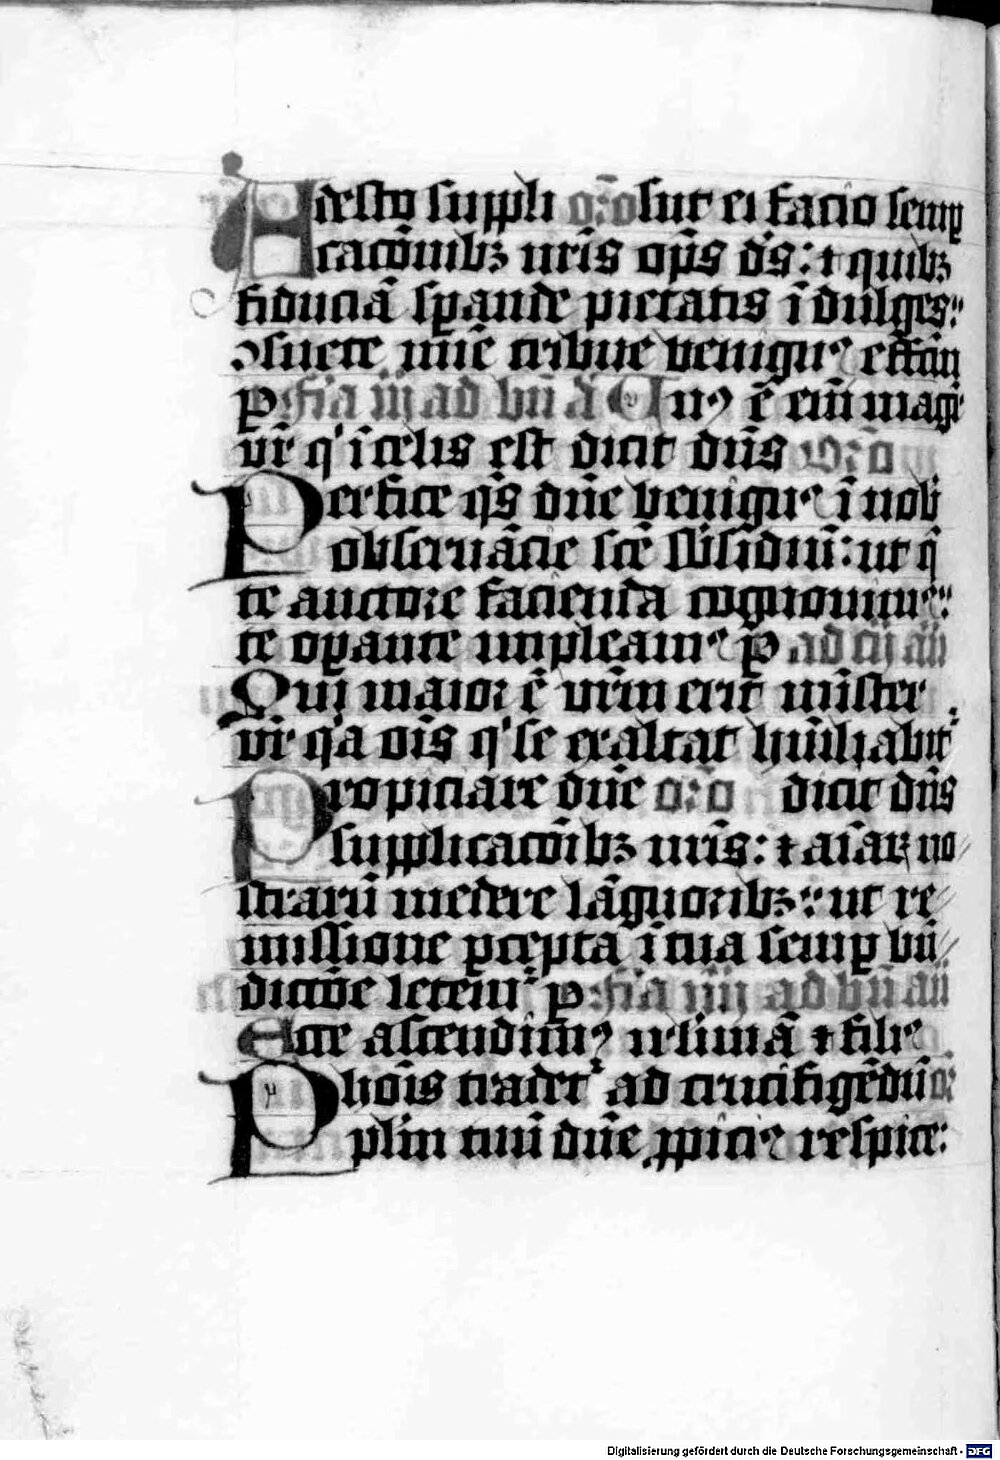 Adesto suppli or̄o sūt ei facio semꝑ
cacōnibꝫ nr̄is op̄s d̄s: ⁊ quibꝫ
fiduciā sꝑande pietatis īdulges:
ꝯsuete mīe tribue benignꝰ effcm̄
ꝑ fr̄ia iij ad bn̄ ā Unꝰ ē em̄ magr̄
vr̄ qͥ ī celis est dicit dn̄s or̄o
Perfice qs̄ dn̄e benignꝰ ī nobī
obseruācie scē sb̄sidiū: ut q̄
te auctore facienda cognouimꝰ:
te oꝑante impleamꝰ ꝑ ad iij añ
Qui maior ē vr̄m erit mīster
vr̄ qͥa oīs qͥ se exaltat hūiliabit᷑
Propiciare dn̄e or̄o dicit dn̄s
supplicacōibꝫ nr̄is: ⁊ aīaꝝ no
strarū medere lāguoribꝫ: ut re
missione ꝑcepta ī tua semꝑ bn̄
dictōe letem᷑ ꝑ fr̄ia iiij ad bn̄ añ
Ecce ascendimꝰ irl̄imā ⁊ filiꝰ
hoīs tradet᷑ ad crucifigēdū or̄
Pplm̄ tuū dn̄e ꝓpiciꝰ respice:
Digitalisierung gefördert durch die Deutsche Forschungsgemeinschaft - DFG